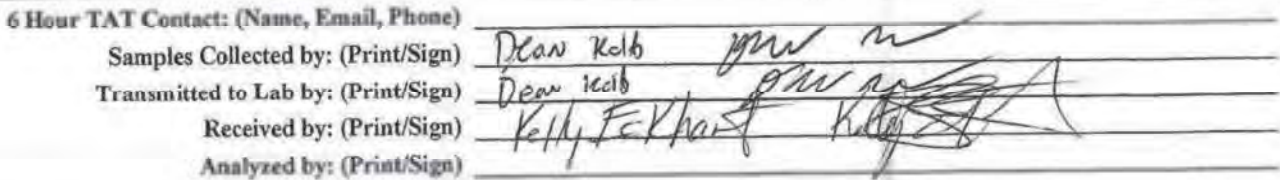 6 Hour TAT Contact: (Name, Email, Phone)
Samples Collected by: (Print/Sign) Dean Kolb
Transmitted to Lab by: (Print/Sign) Dean Kolb
Received by: (Print/Sign) Kelly Eckhart Kelly
Analyzed by: (Print/Sign)